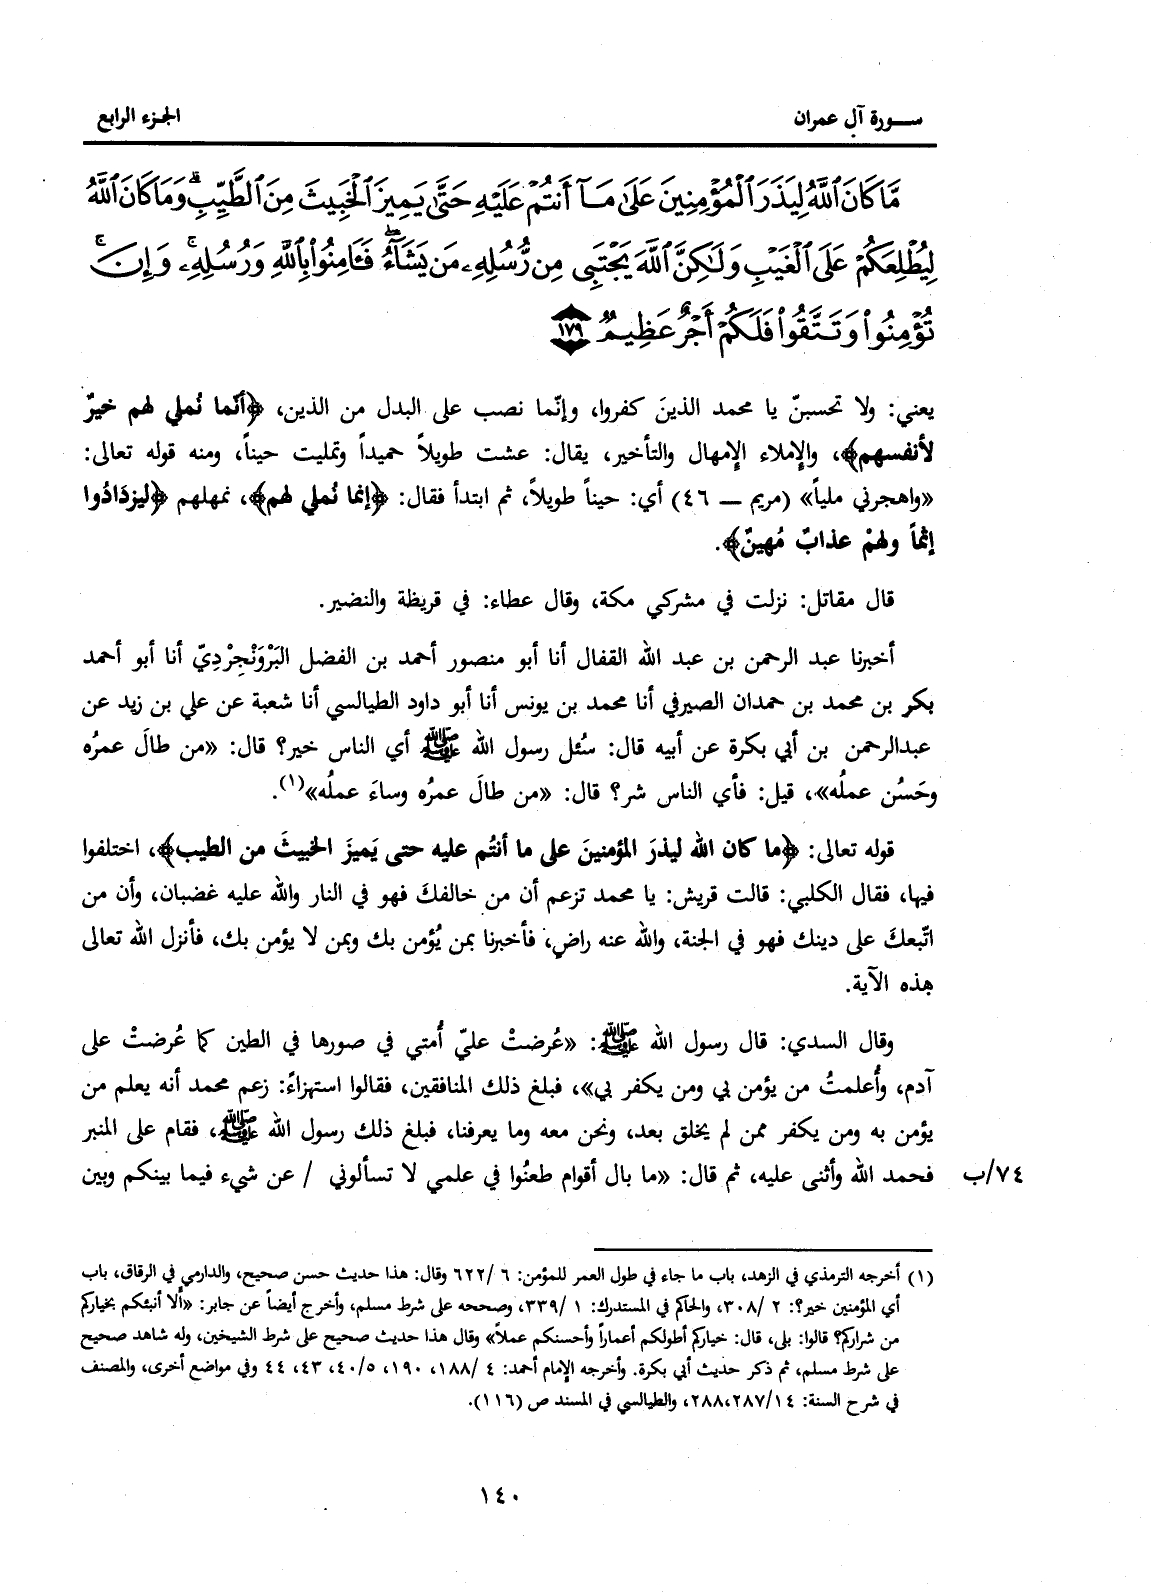 سورة آل عمران
الجزء الرابع
مَّا كَانَ ٱللَّهُ لِيَذَرَ ٱلْمُؤْمِنِينَ عَلَىٰ مَآ أَنتُمْ عَلَيْهِ حَتَّىٰ يَمِيزَ ٱلْخَبِيثَ مِنَ ٱلطَّيِّبِ ۗ وَمَا كَانَ ٱللَّهُ
لِيُطْلِعَكُمْ عَلَى ٱلْغَيْبِ وَلَٰكِنَّ ٱللَّهَ يَجْتَبِى مِن رُّسُلِهِۦ مَن يَشَآءُ ۖ فَـَٔامِنُوا۟ بِٱللَّهِ وَرُسُلِهِۦ ۚ وَإِن
تُؤْمِنُوا۟ وَتَتَّقُوا۟ فَلَكُمْ أَجْرٌ عَظِيمٌ ١٧٩
يعني: ولا تحسبنّ يا محمد الذينَ كفروا، وإنّما نصب على البدل من الذين، ﴿أنّما نُملي لهم خيرٌ
لأنفسهم﴾، والإملاء الإمهال والتأخير، يقال: عشت طويلاً حميداً وتمليت حيناً، ومنه قوله تعالى:
«واهجرني ملياً» (مريم — ٤٦) أي: حيناً طويلاً، ثم ابتدأ فقال: ﴿إنما نُملي لهم﴾، نمهلهم ﴿ليزدَادُوا
إثماً ولهمْ عذابٌ مُهينٌ﴾.
قال مقاتل: نزلت في مشركي مكة، وقال عطاء: في قريظة والنضير.
أخبرنا عبد الرحمن بن عبد الله القفال أنا أبو منصور أحمد بن الفضل البَرْوَنْجِرْدِيّ أنا أبو أحمد
بكر بن محمد بن حمدان الصيرفي أنا محمد بن يونس أنا أبو داود الطيالسي أنا شعبة عن علي بن زيد عن
عبدالرحمن بن أبي بكرة عن أبيه قال: سُئل رسول الله ﷺ أي الناس خير؟ قال: «من طالَ عمرُه
وحَسُن عملُه»، قيل: فأي الناس شر؟ قال: «من طالَ عمرُه وساءَ عملُه»(١).
قوله تعالى: ﴿ما كان الله ليذرَ المؤمنينَ على ما أنتُم عليه حتى يَميزَ الخبيثَ من الطيب﴾، اختلفوا
فيها، فقال الكلبي: قالت قريش: يا محمد تزعم أن من خالفكَ فهو في النار والله عليه غضبان، وأن من
اتّبعكَ على دينك فهو في الجنة، والله عنه راضٍ، فأخبرنا بمن يُؤمن بك وبمن لا يؤمن بك، فأنزل الله تعالى
هذه الآية.
وقال السدي: قال رسول الله ﷺ: «عُرضتْ عليّ أُمتي في صورها في الطين كما عُرضتْ على
آدم، وأُعلمتُ من يؤمن بي ومن يكفر بي»، فبلغ ذلك المنافقين، فقالوا استهزاءً: زعم محمد أنه يعلم من
يؤمن به ومن يكفر ممن لم يخلق بعد، ونحن معه وما يعرفنا، فبلغ ذلك رسول الله ﷺ، فقام على المنبر
فحمد الله وأثنى عليه، ثم قال: «ما بال أقوام طعنُوا في علمي لا تسألوني / عن شيء فيما بينكم وبين
٧٤/ب
(١) أخرجه الترمذي في الزهد، باب ما جاء في طول العمر للمؤمن: ٦ /٦٢٢ وقال: هذا حديث حسن صحيح، والدارمي في الرقاق، باب
أي المؤمنين خير؟: ٢ /٣٠٨، والحاكم في المستدرك: ١ /٣٣٩، وصححه على شرط مسلم، وأخرج أيضاً عن جابر: «ألا أنبئكم بخياركم
من شراركم؟ قالوا: بلى، قال: خياركم أطولكم أعماراً وأحسنكم عملاً» وقال هذا حديث صحيح على شرط الشيخين، وله شاهد صحيح
على شرط مسلم، ثم ذكر حديث أبي بكرة. وأخرجه الإمام أحمد: ٤ /١٨٨، ١٩٠، ٤٠/٥، ٤٣، ٤٤ وفي مواضع أخرى، والمصنف
في شرح السنة: ٢٨٨،٢٨٧/١٤، والطيالسي في المسند ص (١١٦).
١٤٠